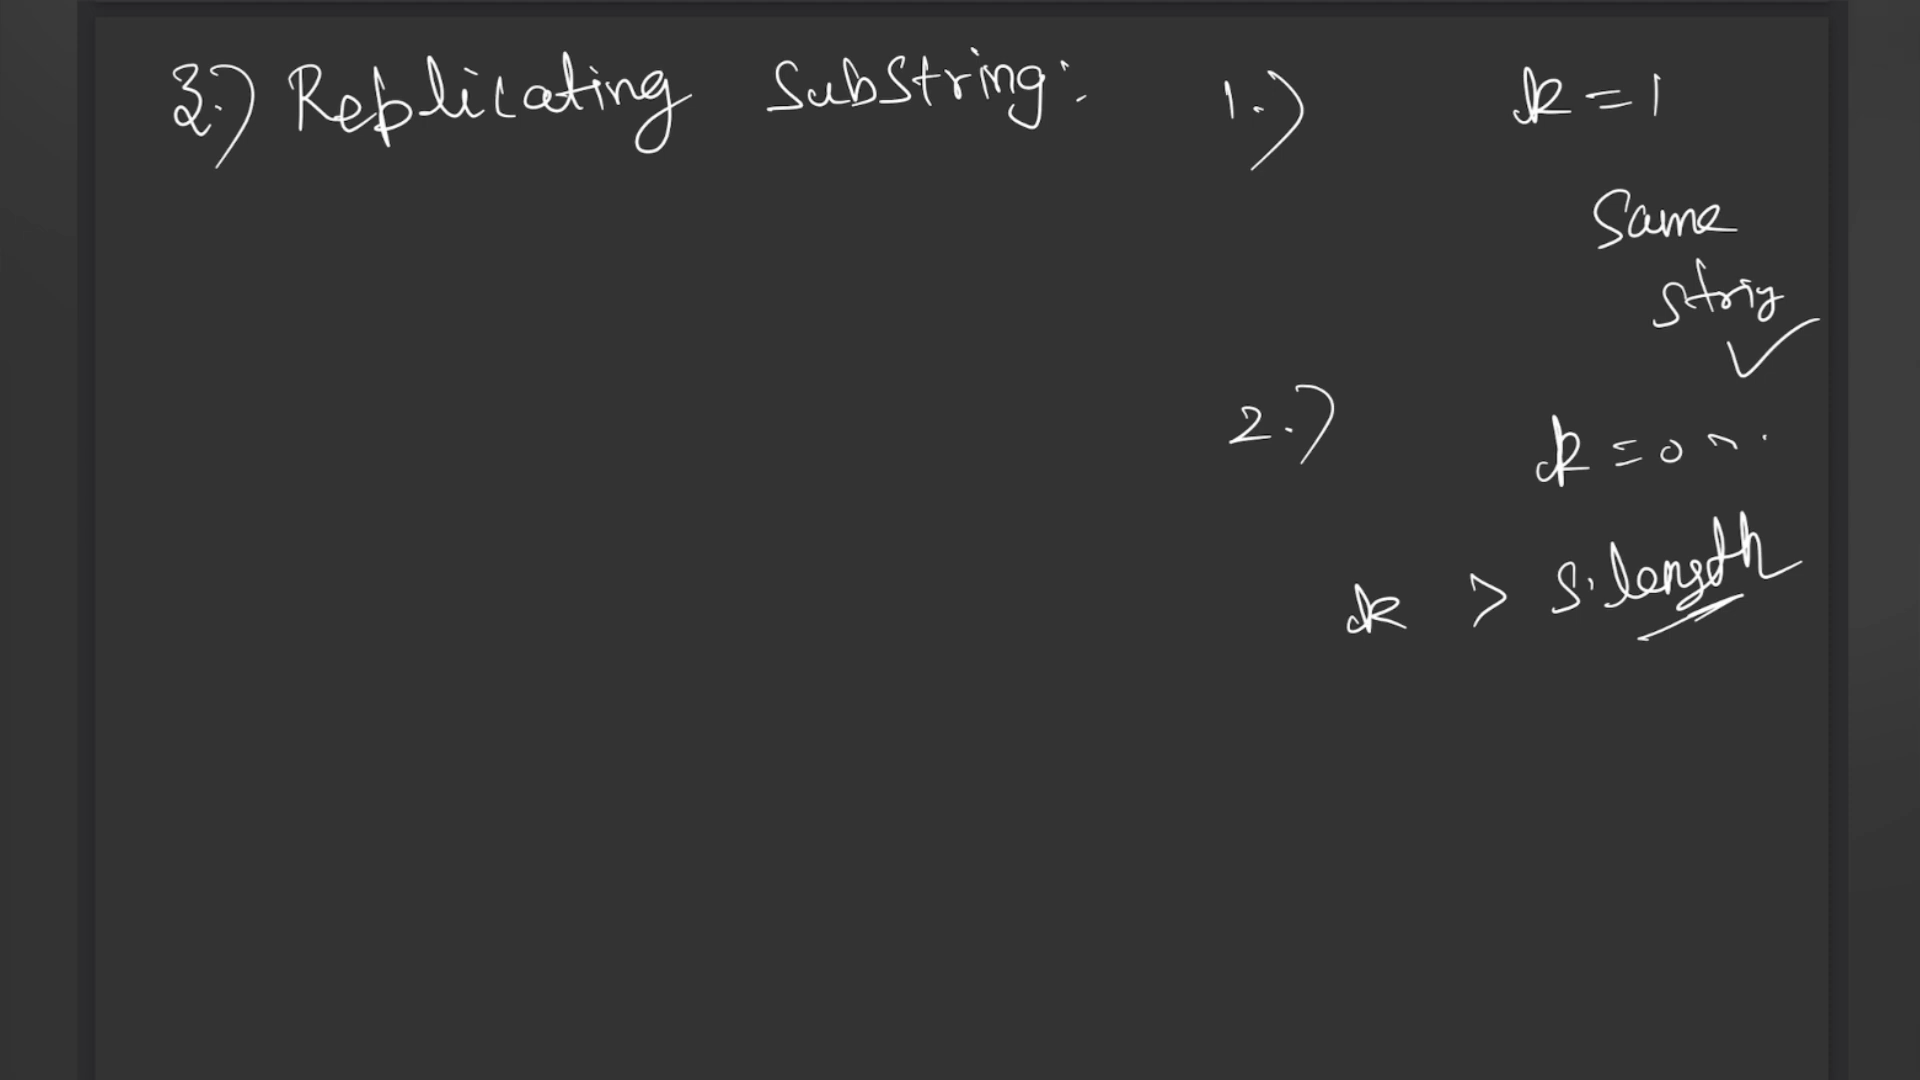 3.) Replicating Substring:
1.) k = 1
Same
string
2.) k = 0
k > s.length